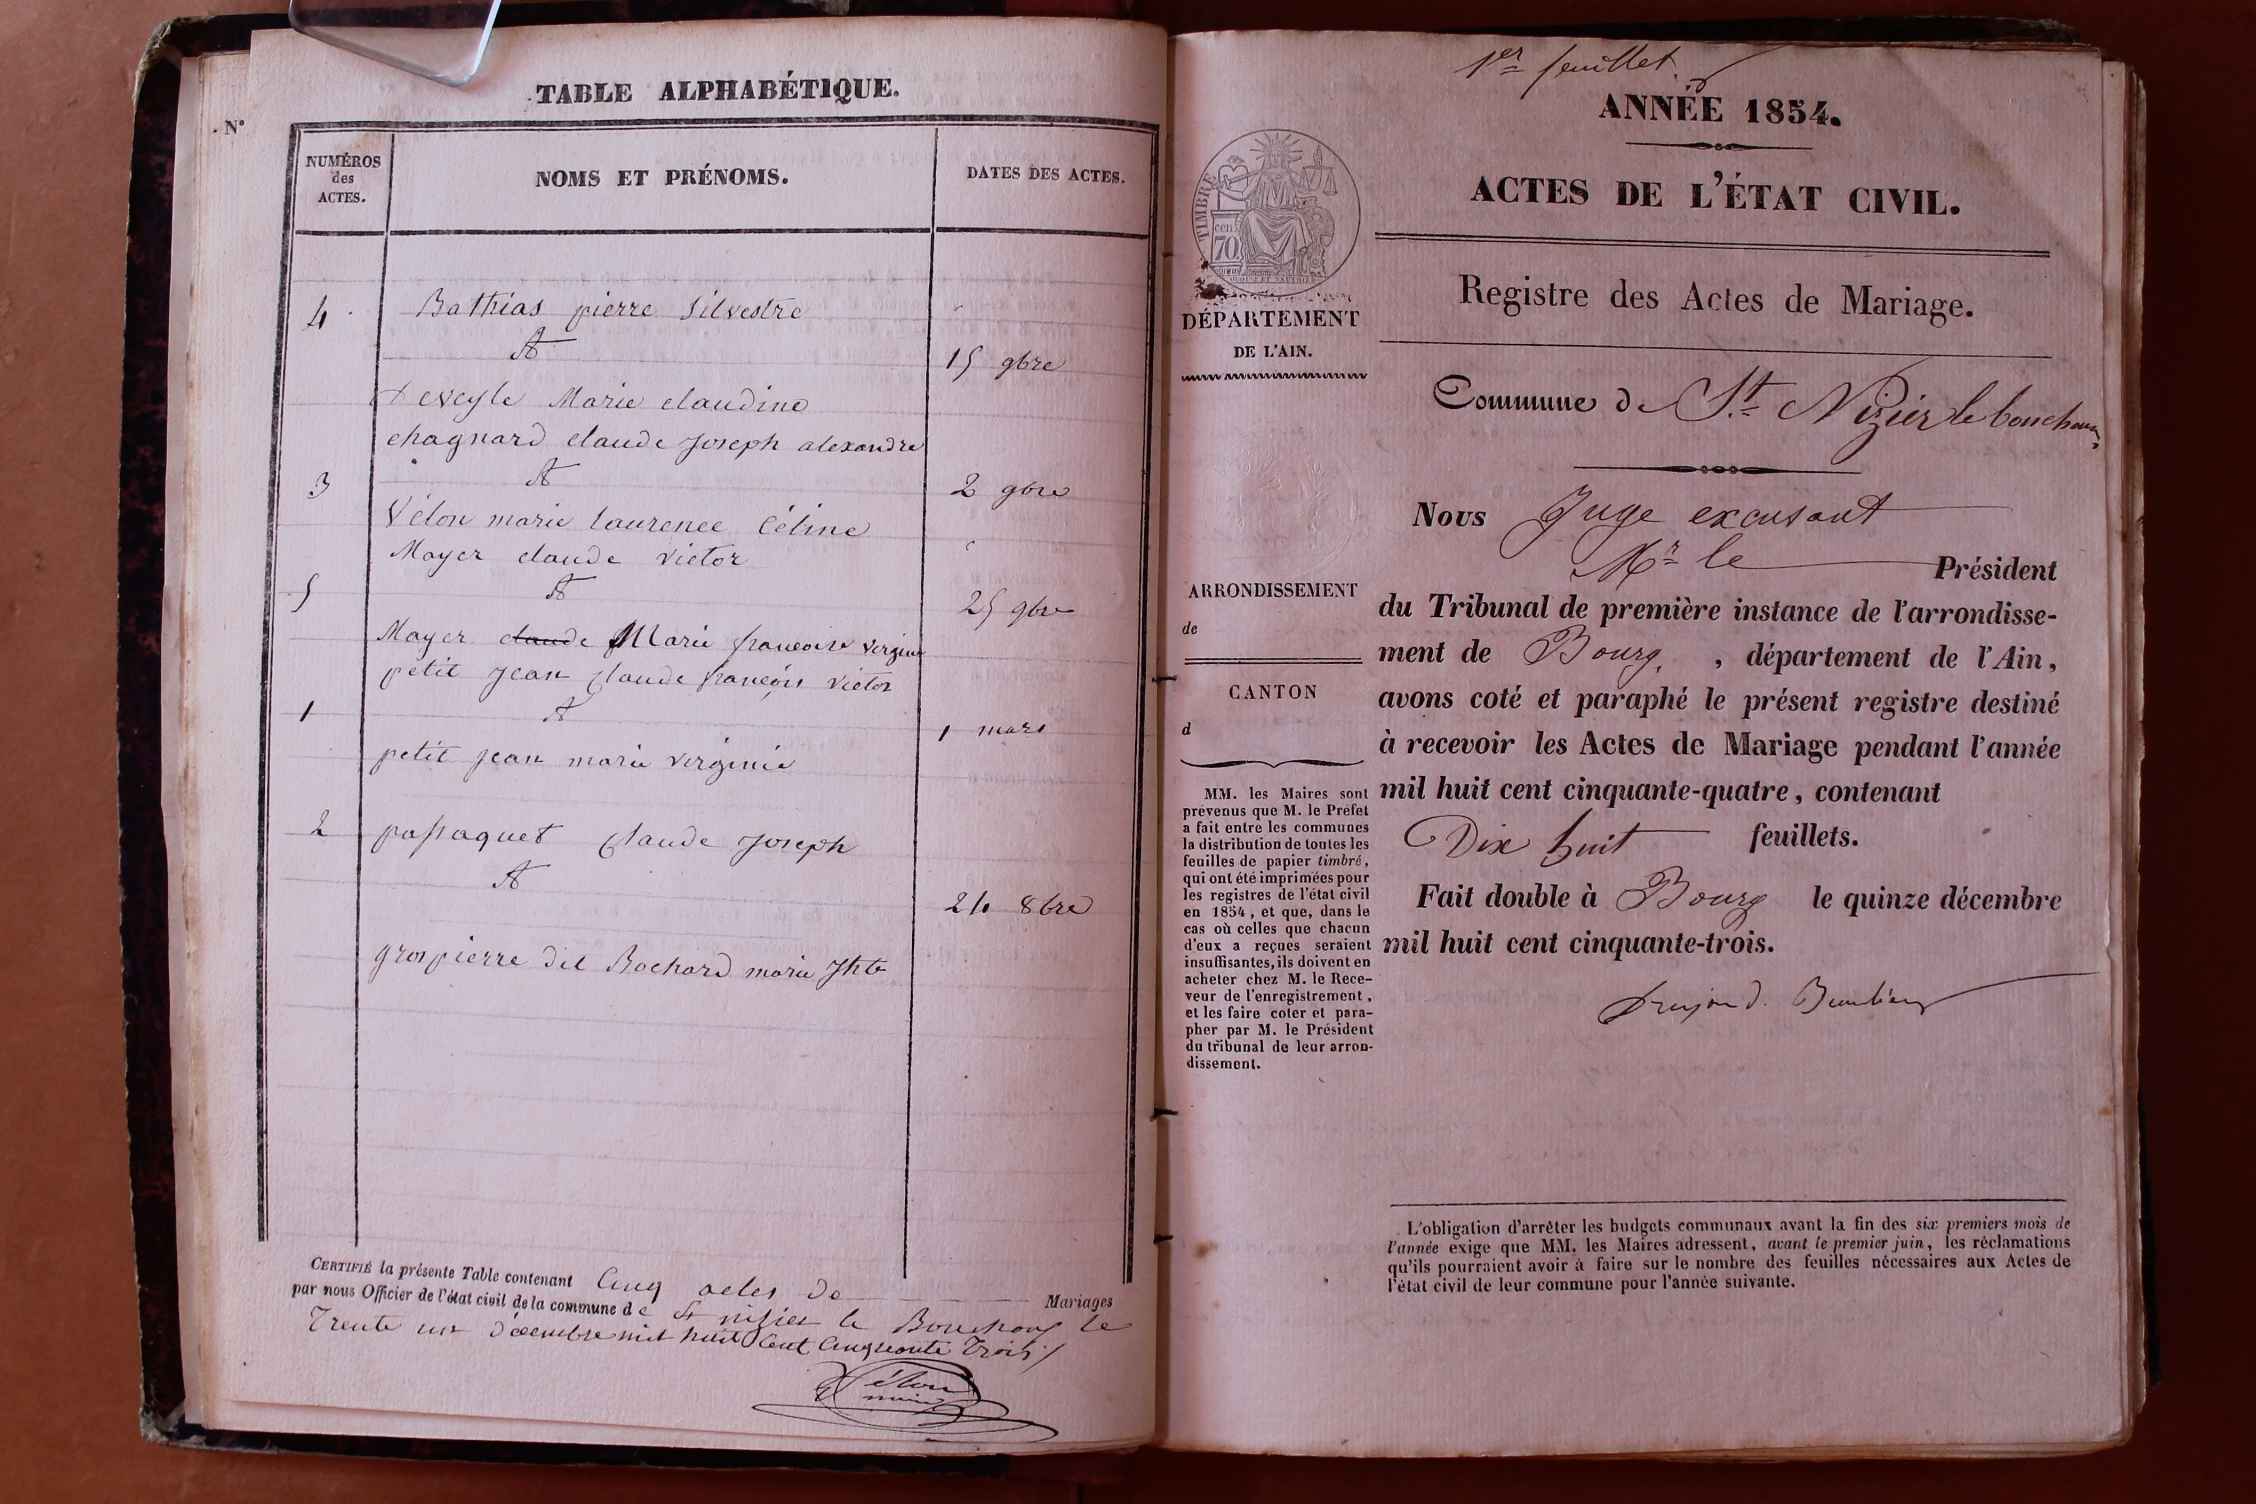 TABLE ALPHABÉTIQUE.
N°
NUMÉROS
des
ACTES.
NOMS ET PRÉNOMS.
DATES DES ACTES.
4 Bathias pierre Silvestre
A
15 9bre
Deveyle Marie claudine
chagnard claude Joseph alexandre
A
3
2 9bre
Vélon marie laurence Céline
Mayer claude victor
A
5
25 9bre
Mayer claude Marie francoise virginie
petit Jean Claude françois victor
A
1
1 mars
petit jean marie virginie
2 passaquet Claude Joseph
A
24 8bre
grospierre dit Bochard marie Jhte
CERTIFIÉ la présente Table contenant Cinq actes de Mariages
par nous Officier de l'état civil de la commune de St nisier le Bouchoux le
Trente un décembre mil huit Cent Cinquante Trois
Vélon
maire
1er feuillet.
ANNÉE 1854.
ACTES DE L'ÉTAT CIVIL.
TIMBRE
70
cen
DÉPARTEMENT
DE L'AIN.
Registre des Actes de Mariage.
Commune de St Nizier le bouchoux
ARRONDISSEMENT
de
CANTON
d
MM. les Maires sont
prévenus que M. le Préfet
a fait entre les communes
la distribution de toutes les
feuilles de papier timbré,
qui ont été imprimées pour
les registres de l'état civil
en 1854, et que, dans le
cas où celles que chacun
d'eux a reçues seraient
insuffisantes, ils doivent en
acheter chez M. le Rece-
veur de l'enregistrement,
et les faire coter et para-
pher par M. le Président
du tribunal de leur arron-
dissement.
Nous Juge excusant
Mr le Président
du Tribunal de première instance de l'arrondisse-
ment de Bourg, , département de l'Ain,
avons coté et paraphé le présent registre destiné
à recevoir les Actes de Mariage pendant l'année
mil huit cent cinquante-quatre, contenant
Dix huit feuillets.
Fait double à Bourg le quinze décembre
mil huit cent cinquante-trois.
L'obligation d'arrêter les budgets communaux avant la fin des six premiers mois de
l'année exige que MM. les Maires adressent, avant le premier juin, les réclamations
qu'ils pourraient avoir à faire sur le nombre des feuilles nécessaires aux Actes de
l'état civil de leur commune pour l'année suivante.